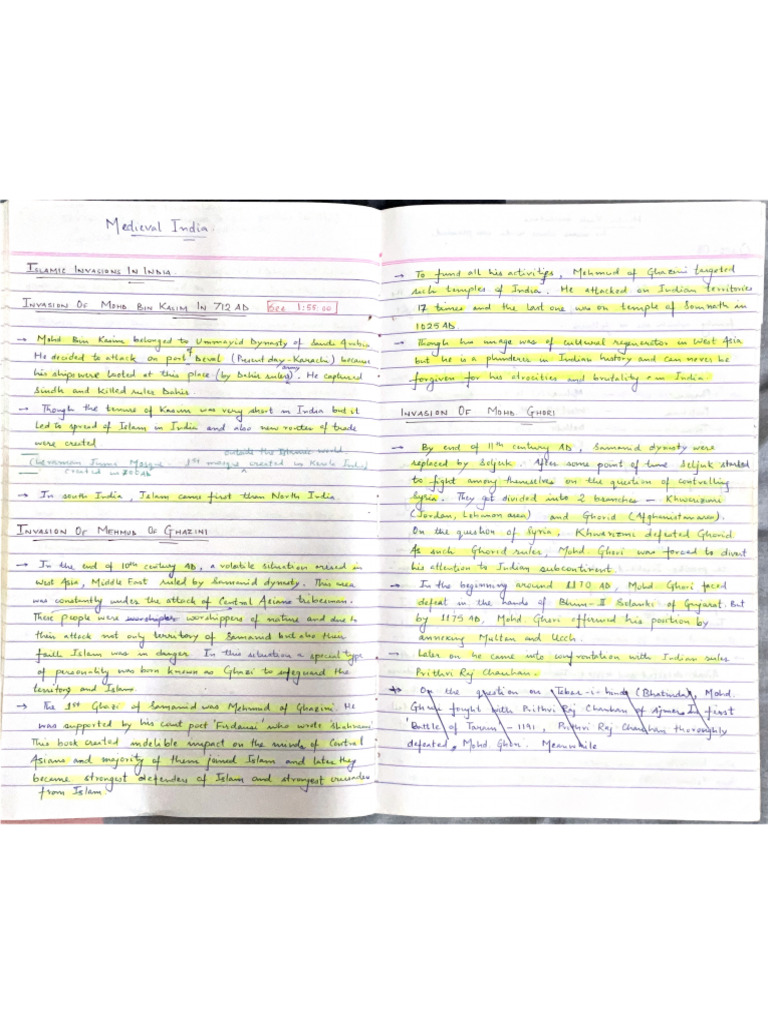 Medieval India.
ISLAMIC INVASIONS IN INDIA
INVASION OF MOHD BIN KASIM IN 712 AD Sec 1:55:00
→ Mohd Bin Kasim belonged to Ummayid Dynasty of Saudi Arabia
He decided to attack on port of Deval (Present day - Karachi) because
his ships were looted at this place (by Dahir rulers army). He captured
Sindh and killed ruler Dahir.
→ Though the tenure of Kasim was very short in India but it
led to spread of Islam in India and also new routes of trade
were created
outside the Islamic world
Cheraman Juma Mosque 1st mosque created in Kerala India
created in AD
→ In south India, Islam came first than North India.
INVASION OF MEHMUD OF GHAZINI
→ In the end of 10th century AD, a volatile situation arised in
West Asia, Middle East ruled by Samanid dynasty. This area
was constantly under the attack of Central Asians tribesman.
These people were worshipper worshippers of nature and due to
their attack not only territory of Samanid but also their
faith Islam was in danger. In this situation a special type
of personality was born known as Ghazi to safeguard the
territory and Islam.
→ The 1st Ghazi of Samanid was Mehmud of Ghazini. He
was supported by his court poet 'Firdausi' who wrote Shahnama
This book created indelible impact on the minds of Central
Asians and majority of them joined Islam and later they
became strongest defenders of Islam and strongest crusaders
from Islam.
→ To fund all his activities, Mehmud of Ghazini targeted
rich temples of India. He attacked on Indian territories
17 times and the last one was on temple of Somnath in
1025 AD.
→ Though his image was of cultural regenerator in West Asia
but he is a plunderer in Indian history and can never be
forgiven for his atrocities and brutality in India.
INVASION OF MOHD. GHORI
→ By end of 11th century AD, Samanid dynasty were
replaced by Seljuk. After some point of time Seljuk started
to fight among themselves on the question of controlling
Syria. They got divided into 2 branches - Khwarizmi
(Jordan, Lebanon area) and Ghorid (Afghanistan area).
On the question of Syria, Khwarizmi defeated Ghorid.
As such Ghorid ruler, Mohd. Ghori was forced to divert
his attention to Indian subcontinent.
→ In the beginning around 1170 AD, Mohd Ghori faced
defeat in the hands of Bhim-II Solanki of Gujarat. But
by 1175 AD, Mohd Ghori affirmed his position by
annexing Multan and Ucch.
→ Later on he came into confrontation with Indian ruler
Prithvi Raj Chauhan.
→ On the question on Tabar-i-hind (Bhatinda), Mohd.
Ghori fought with Prithvi Raj Chauhan of Ajmer. In first
'Battle of Tarain - 1191, Prithvi Raj Chauhan thoroughly
defeated Mohd Ghori. Meanwhile